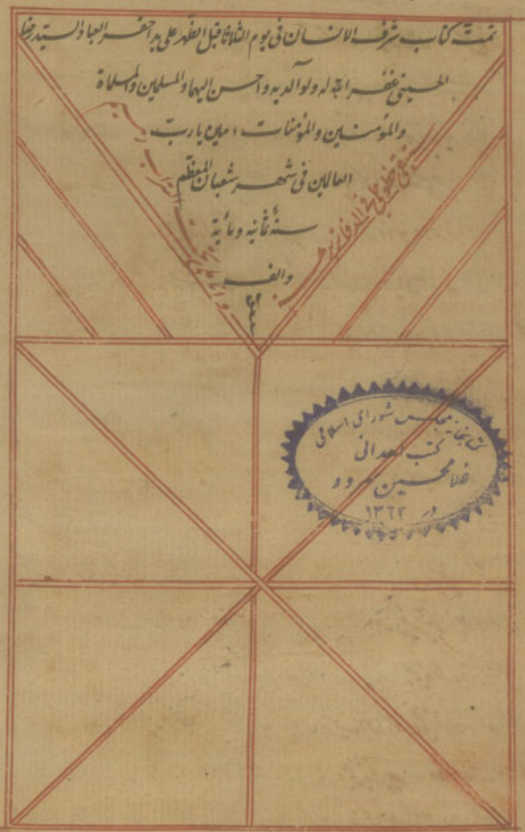 تمت كتاب شرف الانسان فى يوم الثلاثا قبل الظهر على يد احقر العباد السيد رضا
الحسينى غفر الله له ولوالديه واحسن اليهما والمسلمين والمسلماة
والمؤمنين والمؤمنات امين يا رب
العالمين فى شهر شعبان المعظم
سنة ثمانيه ومأية
والف
كتابخانه مجلس شوراى اسلامى
كتب اهدائى
غلامحسين سرود
در ١٣٦٢